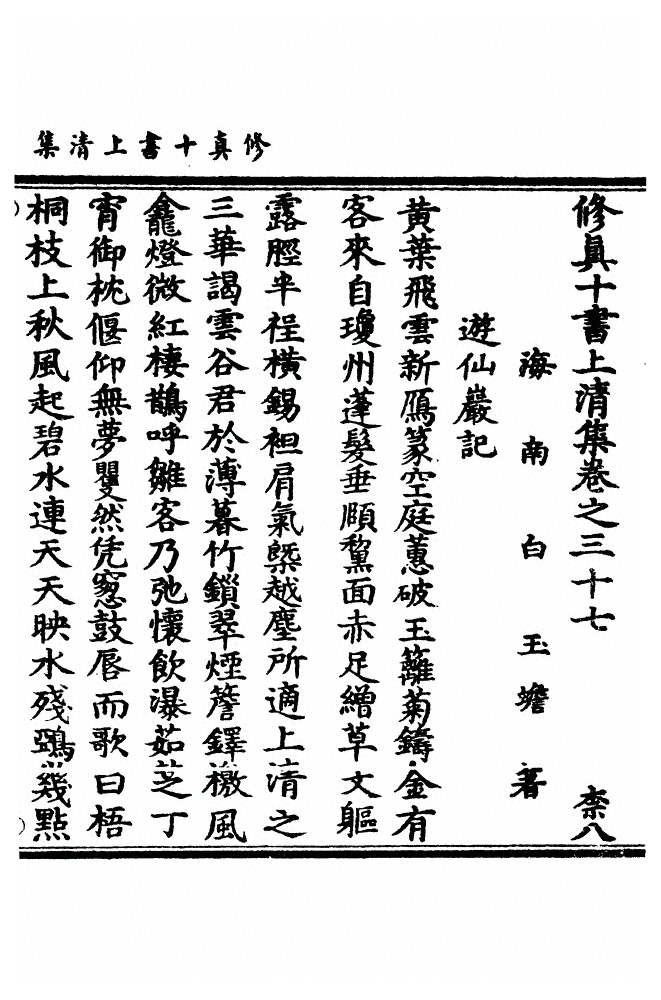 修真十書上清集
修眞十書上清集卷之三十七
柰八
海南白玉蟾著
遊仙巖記
黄葉飛雲新鴈篆空庭蕙破玉籬菊鑄金有
客來自瓊州蓬髮垂頤黧面赤足繒草文軀
露脛半裎橫錫袒肩氣槩越塵所適上清之
三華謁雲谷君於薄暮竹鎖翠煙簷鐸檄風
龕燈微紅棲鵲呼雛客乃弛懷飲瀑茹芝丁
宵御枕偃仰無夢矍然凭窻鼓唇而歌曰梧
桐枝上秋風起碧水連天天映水殘鵶幾點